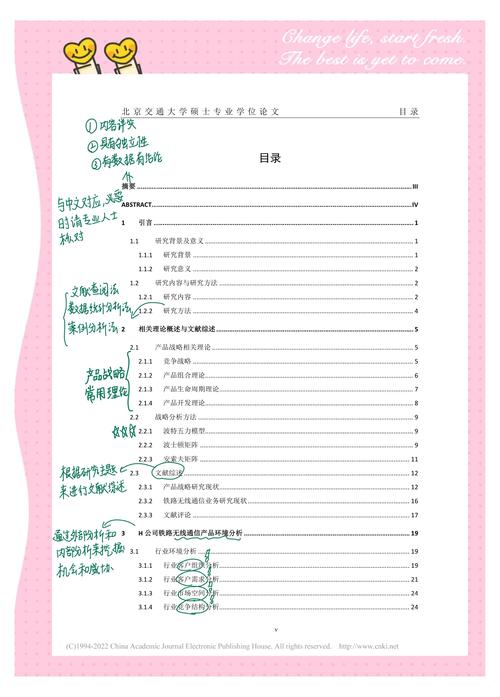 Change life, start fresh.
The best is yet to come.
北京交通大学硕士专业学位论文 目录
①内容详实
②具有独立性
③有数据有结论
目录
摘要 III
与中文对应，必要
时请专业人士
核对
ABSTRACT IV
1 引言 1
1.1 研究背景及意义 1
1.1.1 研究背景 1
1.1.2 研究意义 1
1.2 研究内容与研究方法 2
1.2.1 研究内容 2
1.2.2 研究方法 4
文献查阅法
数据统计分析法
案例分析法
2 相关理论概述与文献综述 5
2.1 产品战略相关理论 5
2.1.1 竞争战略 5
2.1.2 产品组合理论 6
2.1.3 产品生命周期理论 7
2.1.4 产品开发理论 8
产品战略
常用理论
2.2 战略分析方法 9
2.2.1 波特五力模型 9
2.2.2 波士顿矩阵 9
2.2.3 安索夫矩阵 11
2.3 文献综述 12
根据研究主题
来进行文献综述
2.3.1 产品战略研究现状 12
2.3.2 铁路无线通信业务研究现状 16
2.3.3 文献评论 17
3 H 公司铁路无线通信产品环境分析 19
通过外部分析和
内部分析来挖掘
机会和威胁
3.1 行业环境分析 19
3.1.1 行业客户组织分析 19
3.1.2 行业客户需求分析 21
3.1.3 行业市场空间分析 24
3.1.4 行业竞争结构分析 24
v
(C)1994-2022 China Academic Journal Electronic Publishing House. All rights reserved. http://www.cnki.net